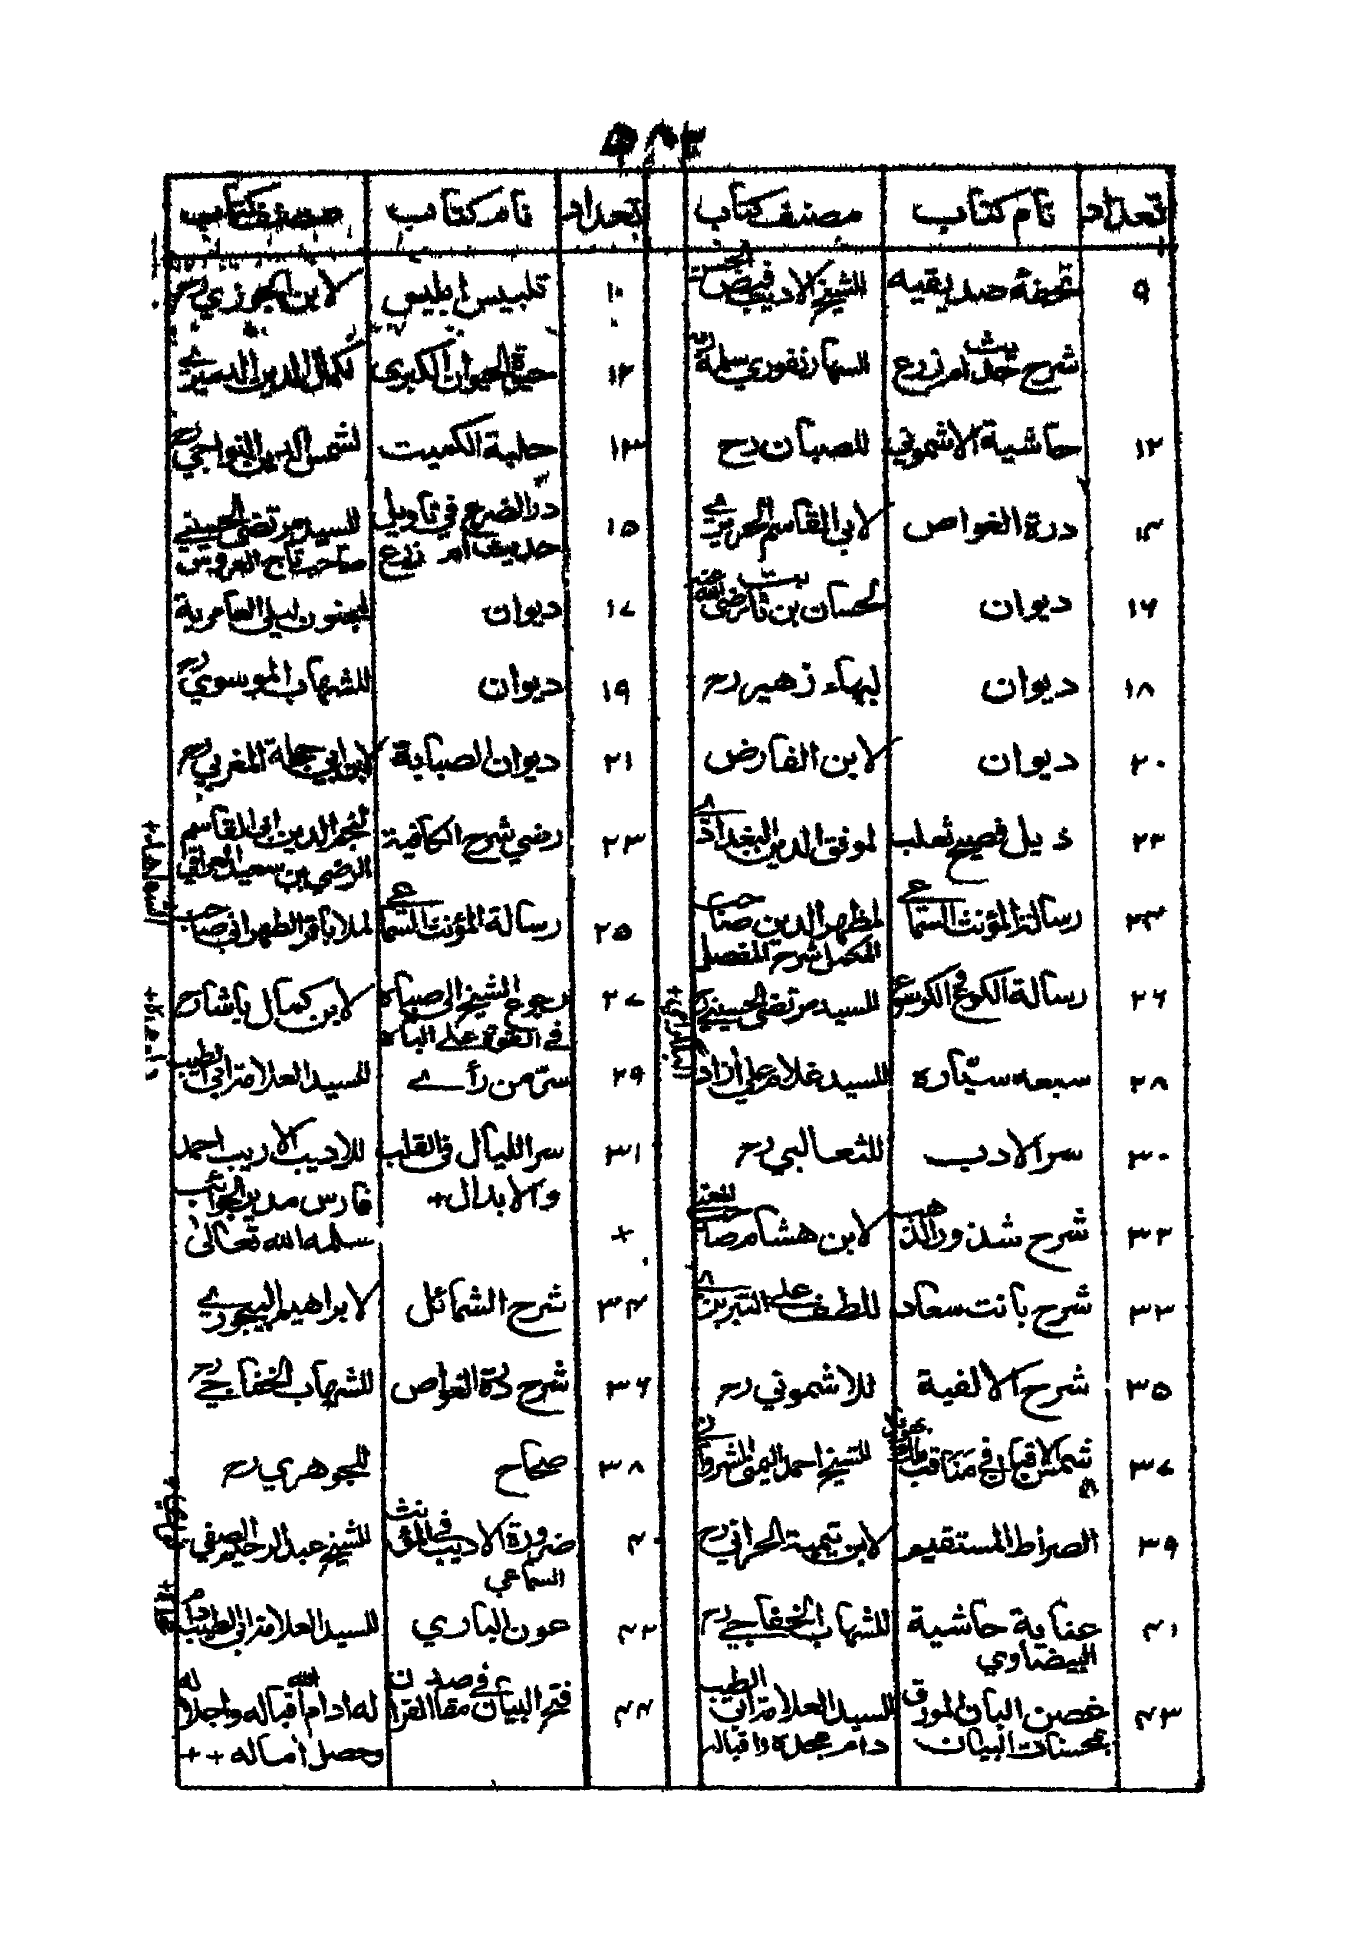 تعداد نام كتاب مصنف كتاب تعداد نام كتاب مصنف كتاب
٩ تحفة صديقيه للشيخ الاديب فيض الحسن ١٠ تلبيس ابليس لابن الجوزي رح
١١ شرح حديث ام زرع السهارنفوري سلمه ١٢ حيوة الحيوان الكبرى لكمال الدين الدميري
١٢ حاشية الاشموني للصبان رح ١٣ حلبة الكميت لشمس الدين النواجي رح
١٤ درة الغواص لابي القاسم الحريري ١٥ در الضرع في تاويل حديث ام زرع للسيد مرتضى الحسيني صاحب تاج العروس
١٦ ديوان لحسان بن ثابت رضي الله عنه ١٧ ديوان لمجنون ليلى العامرية
١٨ ديوان لبهاء زهير رح ١٩ ديوان للشهاب الموسوي رح
٢٠ ديوان لابن الفارض ٢١ ديوان الصبابة لابن ابي حجلة المغربي رح
٢٢ ذيل فصيح ثعلب لموفق الدين البغدادي ٢٣ رضي شرح الكافية لنجم الدين ابي القاسم الرضي بن سعيد العراقي
٢٤ رسالة المؤنث السماعي لمظهر الدين صاحب المكمل شرح المفصل ٢٥ رسالة المؤنث السماعي لملا باقر الطهراني صاحب
٢٦ رسالة الكوع الكرسوع للسيد مرتضى الحسيني رح ٢٧ رجوع الشيخ الى صباه في القوة على الباه لابن كمال پاشا رح
٢٨ سبعه سيّاره للسيد غلام علي آزاد ٢٩ سرّ من رأى للسيد العلامة ابي الطيب
٣٠ سر الادب للثعالبي رح ٣١ سر الليال في القلب والابدال + للاديب الاريب احمد فارس مدير الجوائب سلمه الله تعالى
٣٢ شرح شذور الذهب لابن هشام صاحب المغني +
٣٣ شرح بانت سعاد للطف علي التبريزي ٣٤ شرح الشمائل لابراهيم البيجوري
٣٥ شرح الالفية للاشموني رح ٣٦ شرح درة الغواص للشهاب الخفاجي رح
٣٧ شمس الاقبال في مناقب للشيخ احمد اليمني الشرواني ٣٨ صحاح للجوهري رح
٣٩ الصراط المستقيم لابن تيمية الحراني رح ٤٠ ضرورة الاديب في المؤنث السماعي للشيخ عبد الرحيم الصفي
٤١ عناية حاشية البيضاوي للشهاب الخفاجي رح ٤٢ عون الباري للسيد العلامة ابي الطيب دام
٤٣ غصن البان المورق بمحسنات البيان للسيد العلامة ابي الطيب دام مجده واقباله ٤٤ فتح البيان في مقاصد القرآن له ادام الله اقباله واجلاله وحصل آماله + +